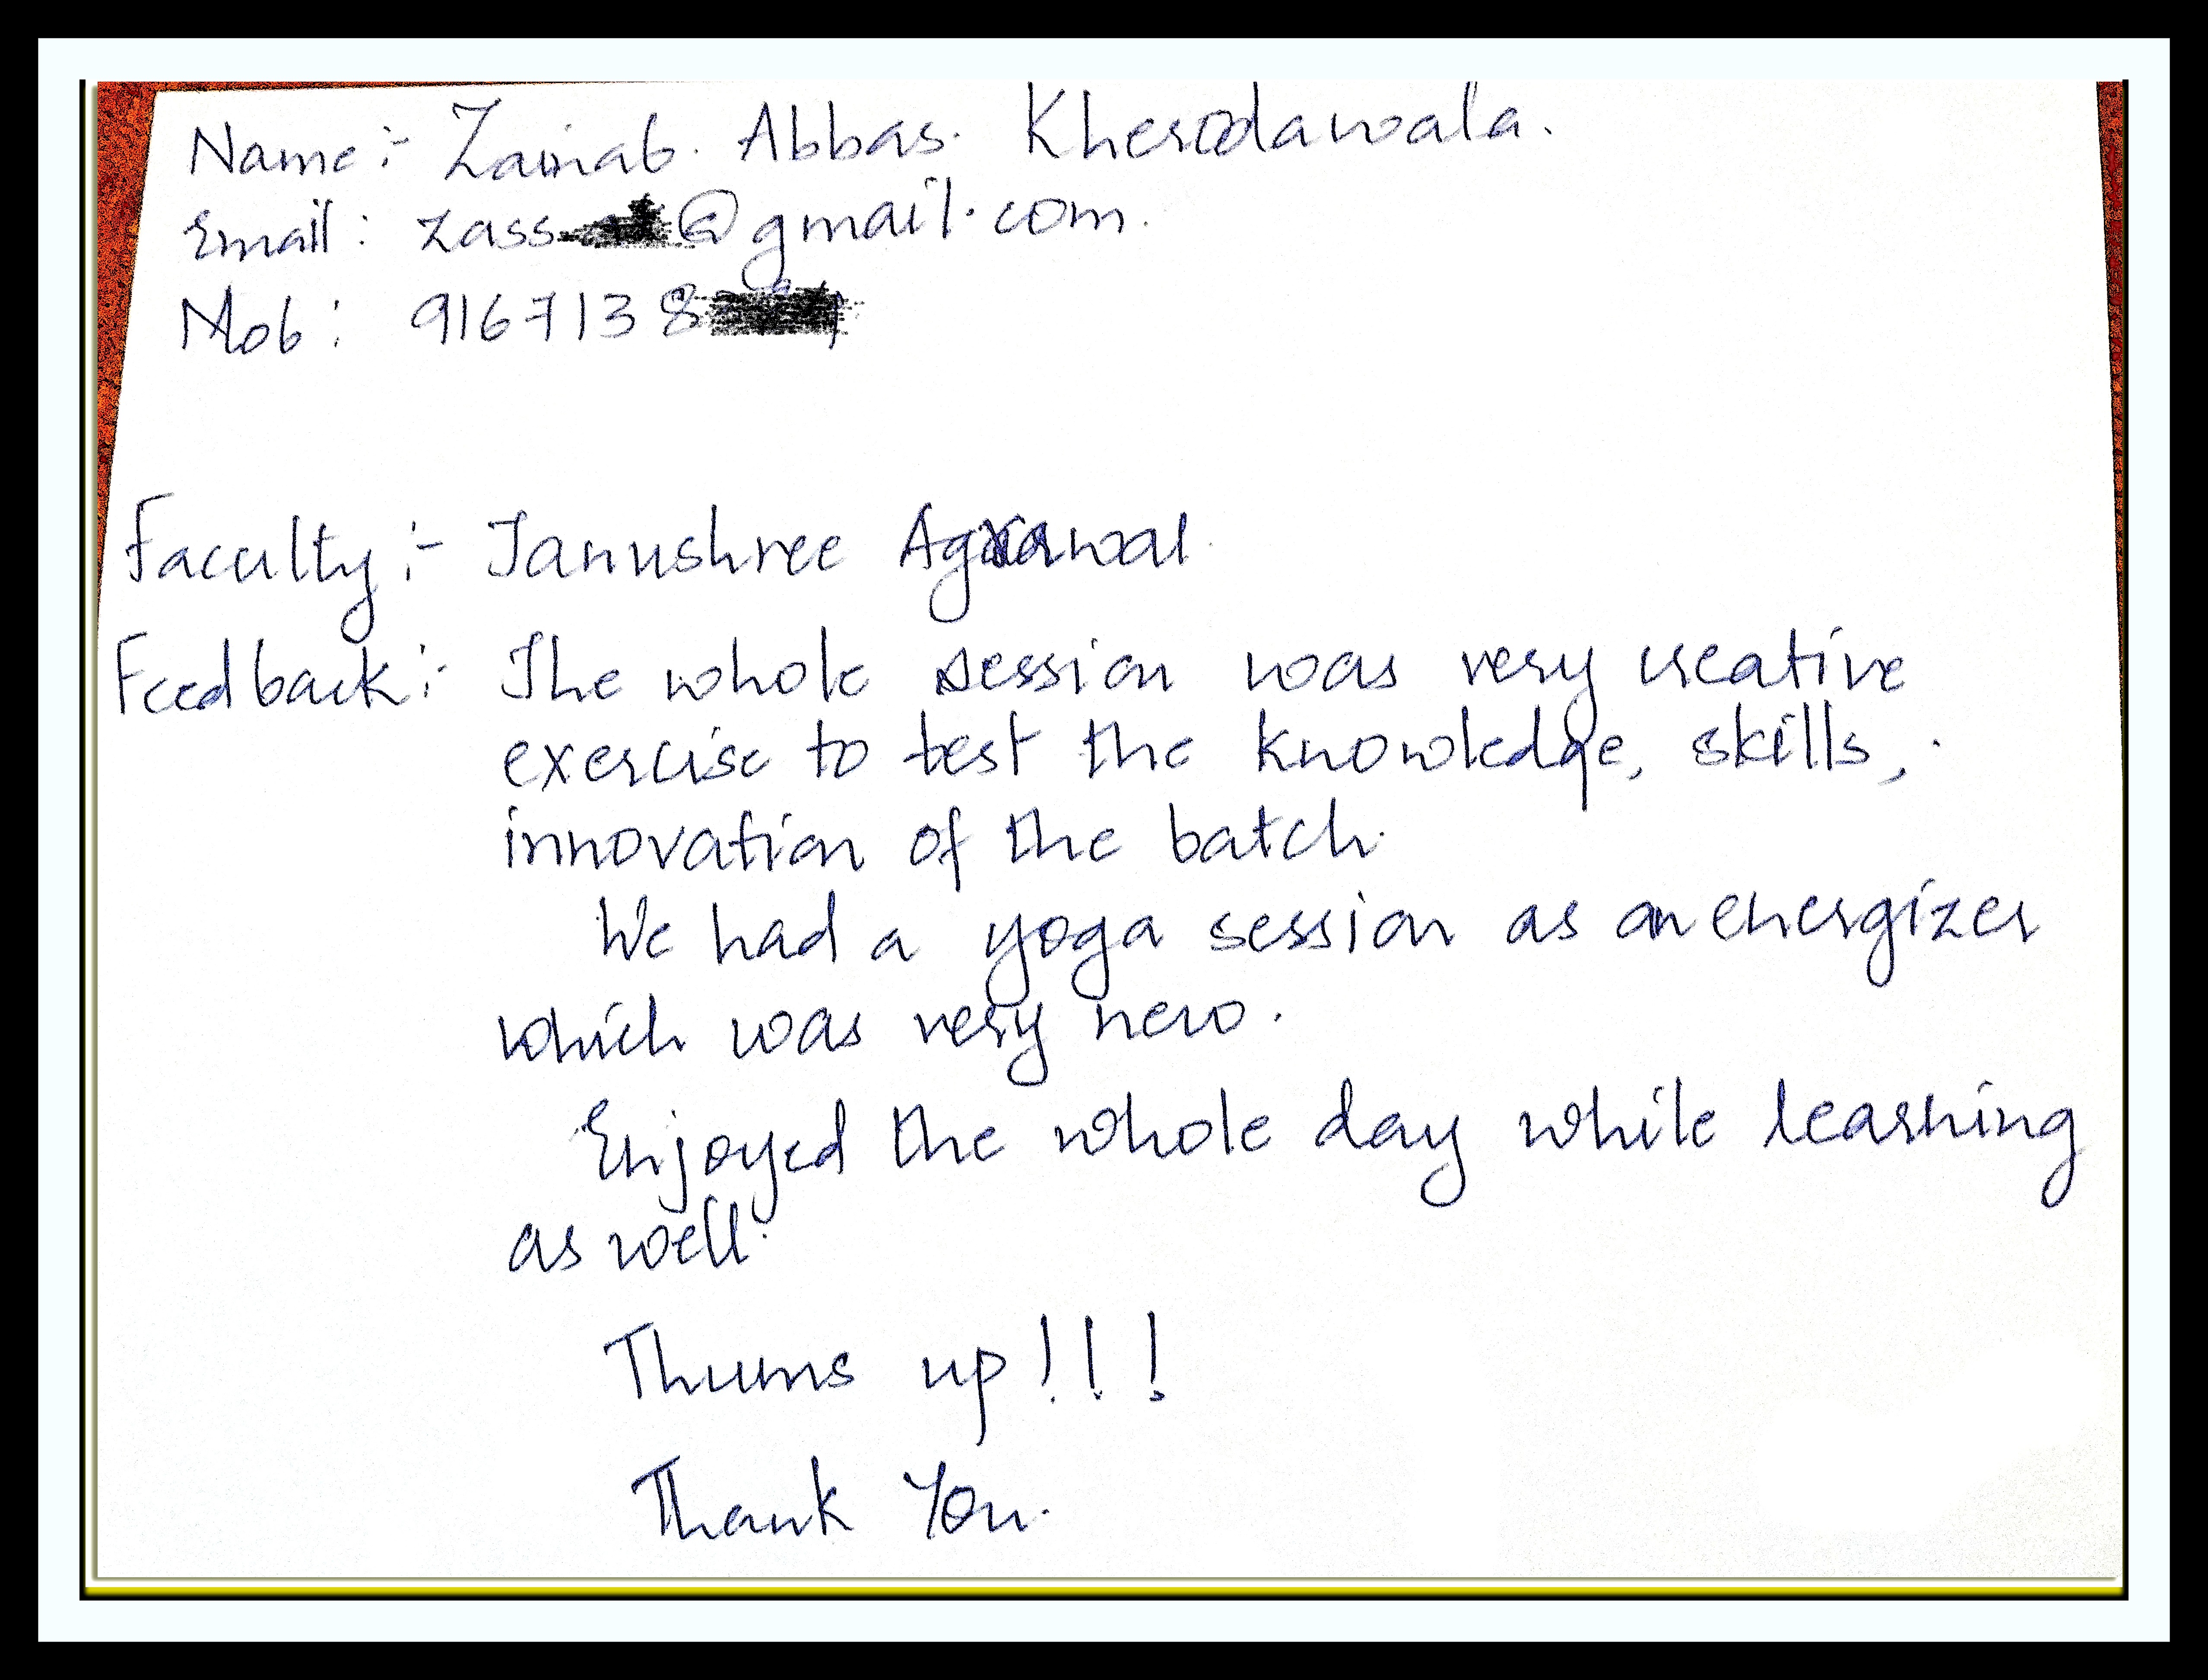 Name :- Zainab. Abbas. Kherodawala.
Email : zass @gmail.com.
Mob : 9167138
Faculty :- Tanushree Agrawal.
Feedback :- The whole session was very creative
exercise to test the knowledge, skills,
innovation of the batch.
We had a yoga session as an energizer
which was very new.
Enjoyed the whole day while learning
as well.
Thums up!!!
Thank You.